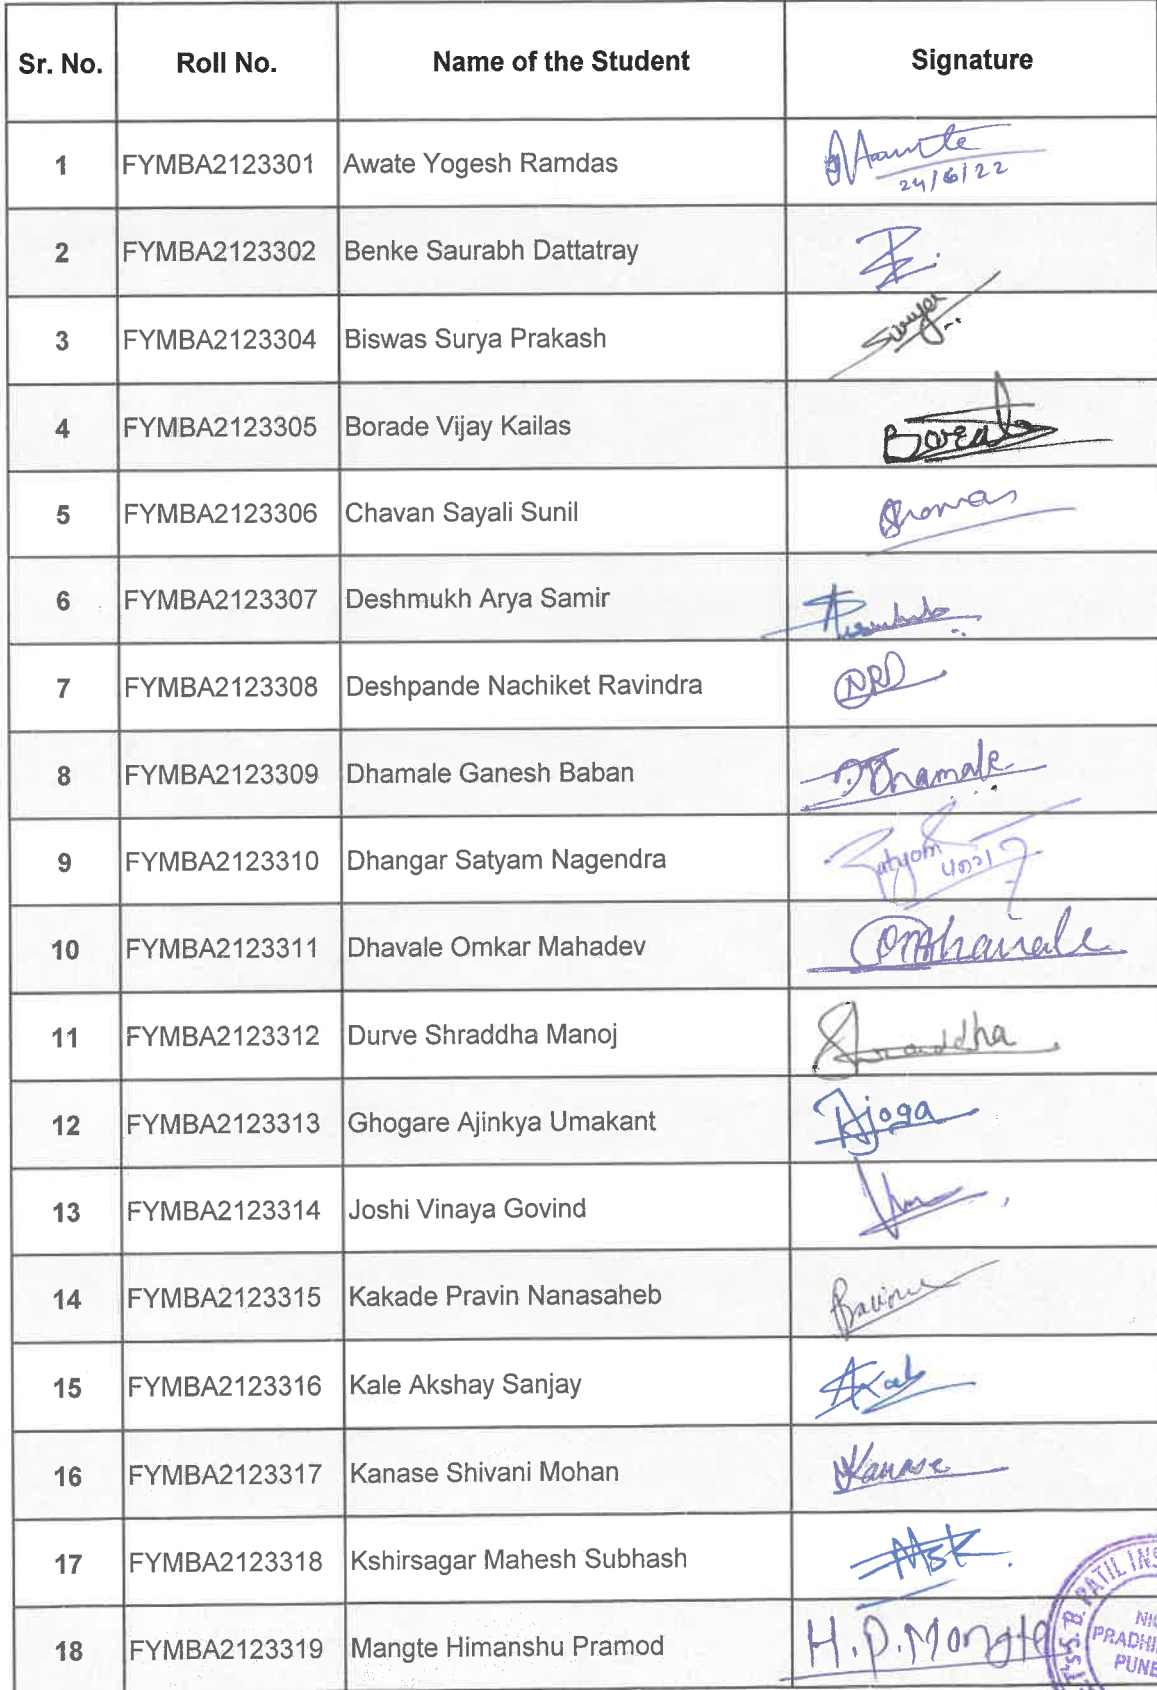 Sr. No. Roll No. Name of the Student Signature
1 FYMBA2123301 Awate Yogesh Ramdas
24/6/22
2 FYMBA2123302 Benke Saurabh Dattatray
3 FYMBA2123304 Biswas Surya Prakash Surya
4 FYMBA2123305 Borade Vijay Kailas
5 FYMBA2123306 Chavan Sayali Sunil
6 FYMBA2123307 Deshmukh Arya Samir
7 FYMBA2123308 Deshpande Nachiket Ravindra NRD
8 FYMBA2123309 Dhamale Ganesh Baban Dhamale
9 FYMBA2123310 Dhangar Satyam Nagendra Satyam
10 FYMBA2123311 Dhavale Omkar Mahadev
11 FYMBA2123312 Durve Shraddha Manoj Shraddha
12 FYMBA2123313 Ghogare Ajinkya Umakant
13 FYMBA2123314 Joshi Vinaya Govind
14 FYMBA2123315 Kakade Pravin Nanasaheb
15 FYMBA2123316 Kale Akshay Sanjay
16 FYMBA2123317 Kanase Shivani Mohan Kanase
17 FYMBA2123318 Kshirsagar Mahesh Subhash MSK
18 FYMBA2123319 Mangte Himanshu Pramod H.P.Mangte
S. B. PATIL INS
PRADHI
PUNE